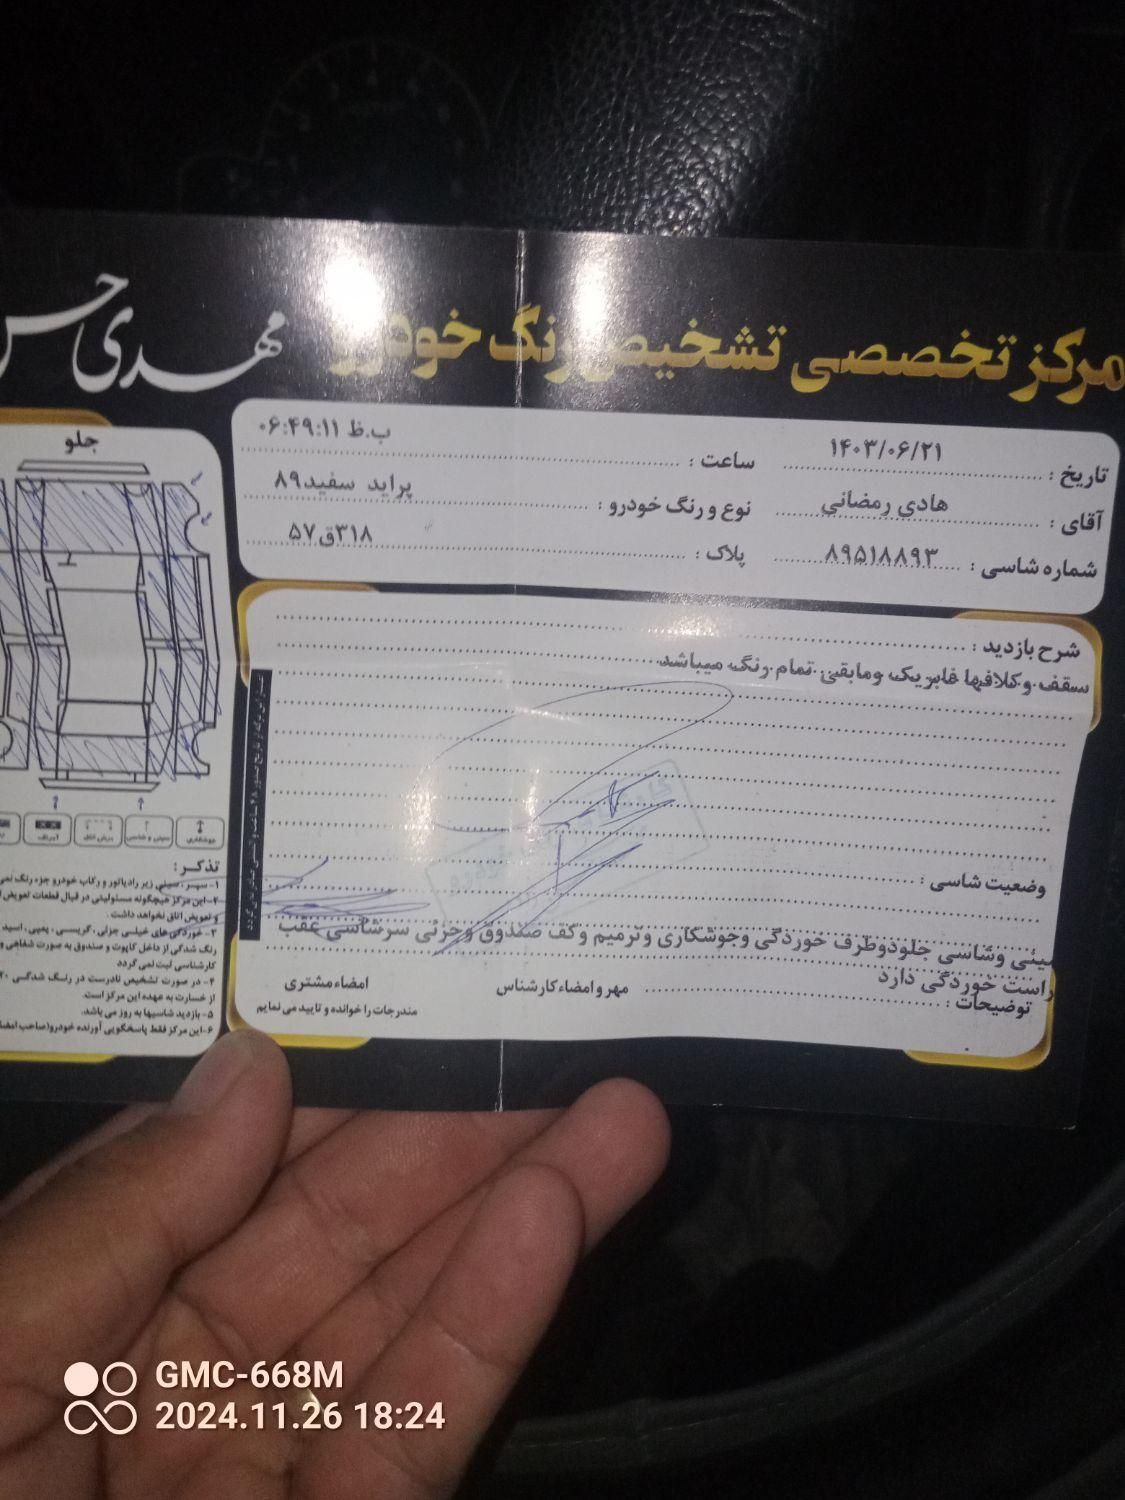 مرکز تخصصی تشخیص رنگ خودرو
مهدی
تاریخ : ۱۴۰۳/۰۶/۲۱
ساعت : ۰۶:۴۹:۱۱ ب.ظ
آقای : هادی رمضانی
نوع و رنگ خودرو : پراید سفید۸۹
شماره شاسی : ۸۹۵۱۸۸۹۳
پلاک : ۳۱۸ق۵۷
شرح بازدید :
سقف وکلافها فابریک ومابقی تمام رنگ میباشد
وضعیت شاسی :
سینی وشاسی جلودوطرف خوردگی وجوشکاری وترمیم وکف صندوق وجزئی سرشاسی عقب
راست خوردگی دارد
توضیحات :
مهر و امضاء کارشناس
امضاء مشتری
مندرجات را خوانده و تایید می نمایم
جلو
جوشکاری
سینی و شاسی
تذکر :
۱- سپر ، سینی زیر رادیاتور و رکاب خودرو جزء رنگ نمی
۲- این مرکز هیچگونه مسئولیتی در قبال قطعات تعویض
و تعویض اتاق نخواهد داشت .
۳- خوردگی های خیلی جزئی، گریسی ، پمپی، اسید
رنگ شدگی از داخل کاپوت و صندوق به صورت شفاهی و
کارشناسی ثبت نمی گردد
۴- در صورت تشخیص نادرست در رنگ شدگی ۲۰
از خسارت به عهده این مرکز است.
۵- بازدید شاسیها به روز می باشد.
۶- این مرکز فقط پاسخگویی آورنده خودرو(صاحب امضا
GMC-668M
2024.11.26 18:24